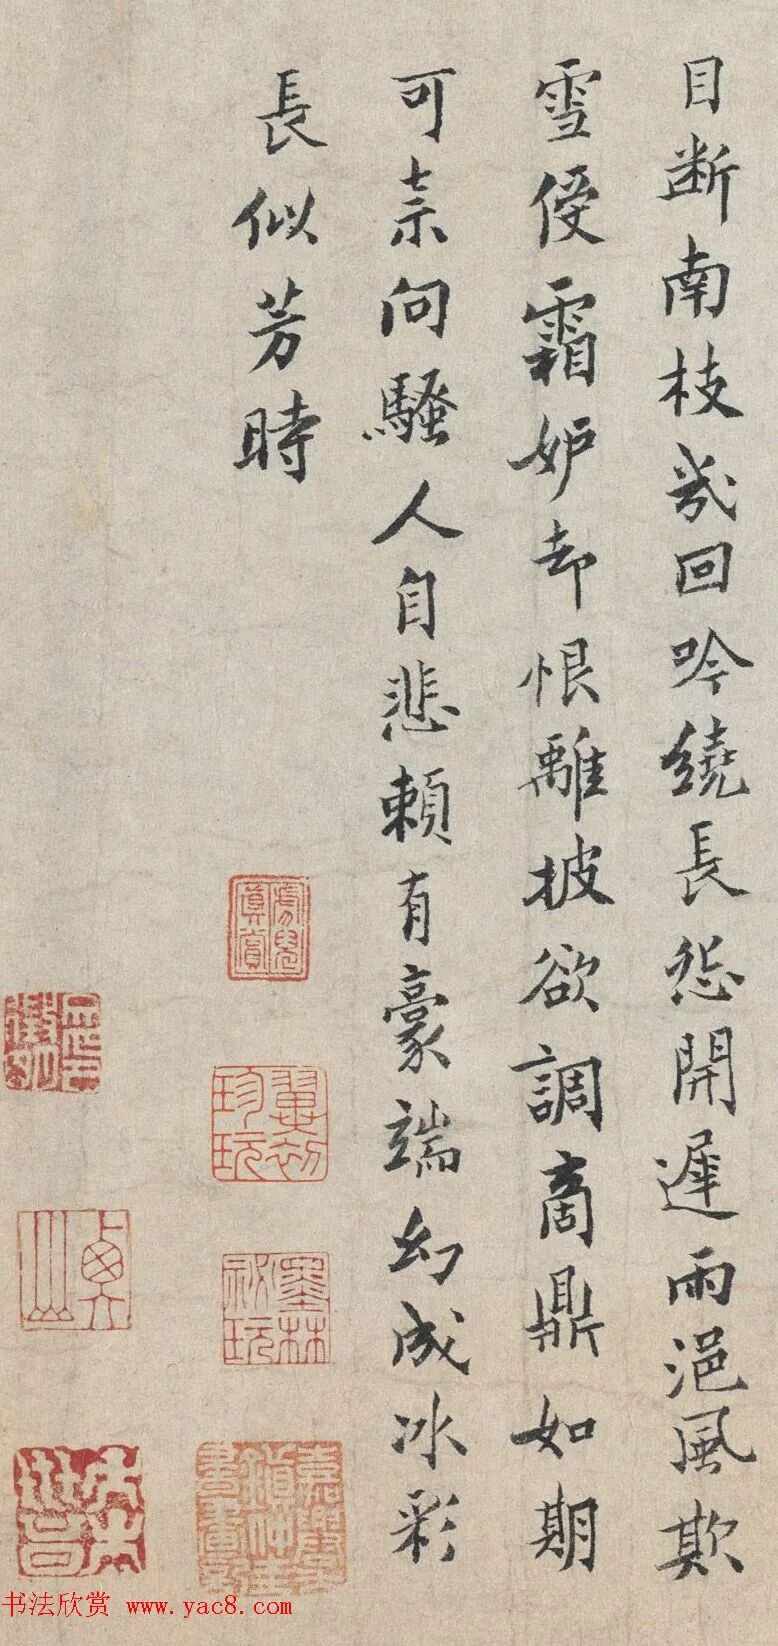 目断南枝幾回吟繞長怨開遲雨浥風欺
雪侵霜妒却恨離披欲調商鼎如期
可柰向騷人自悲賴有豪端幻成冰彩
長似芳時
墨林
祕玩
书法欣赏 www.yac8.com